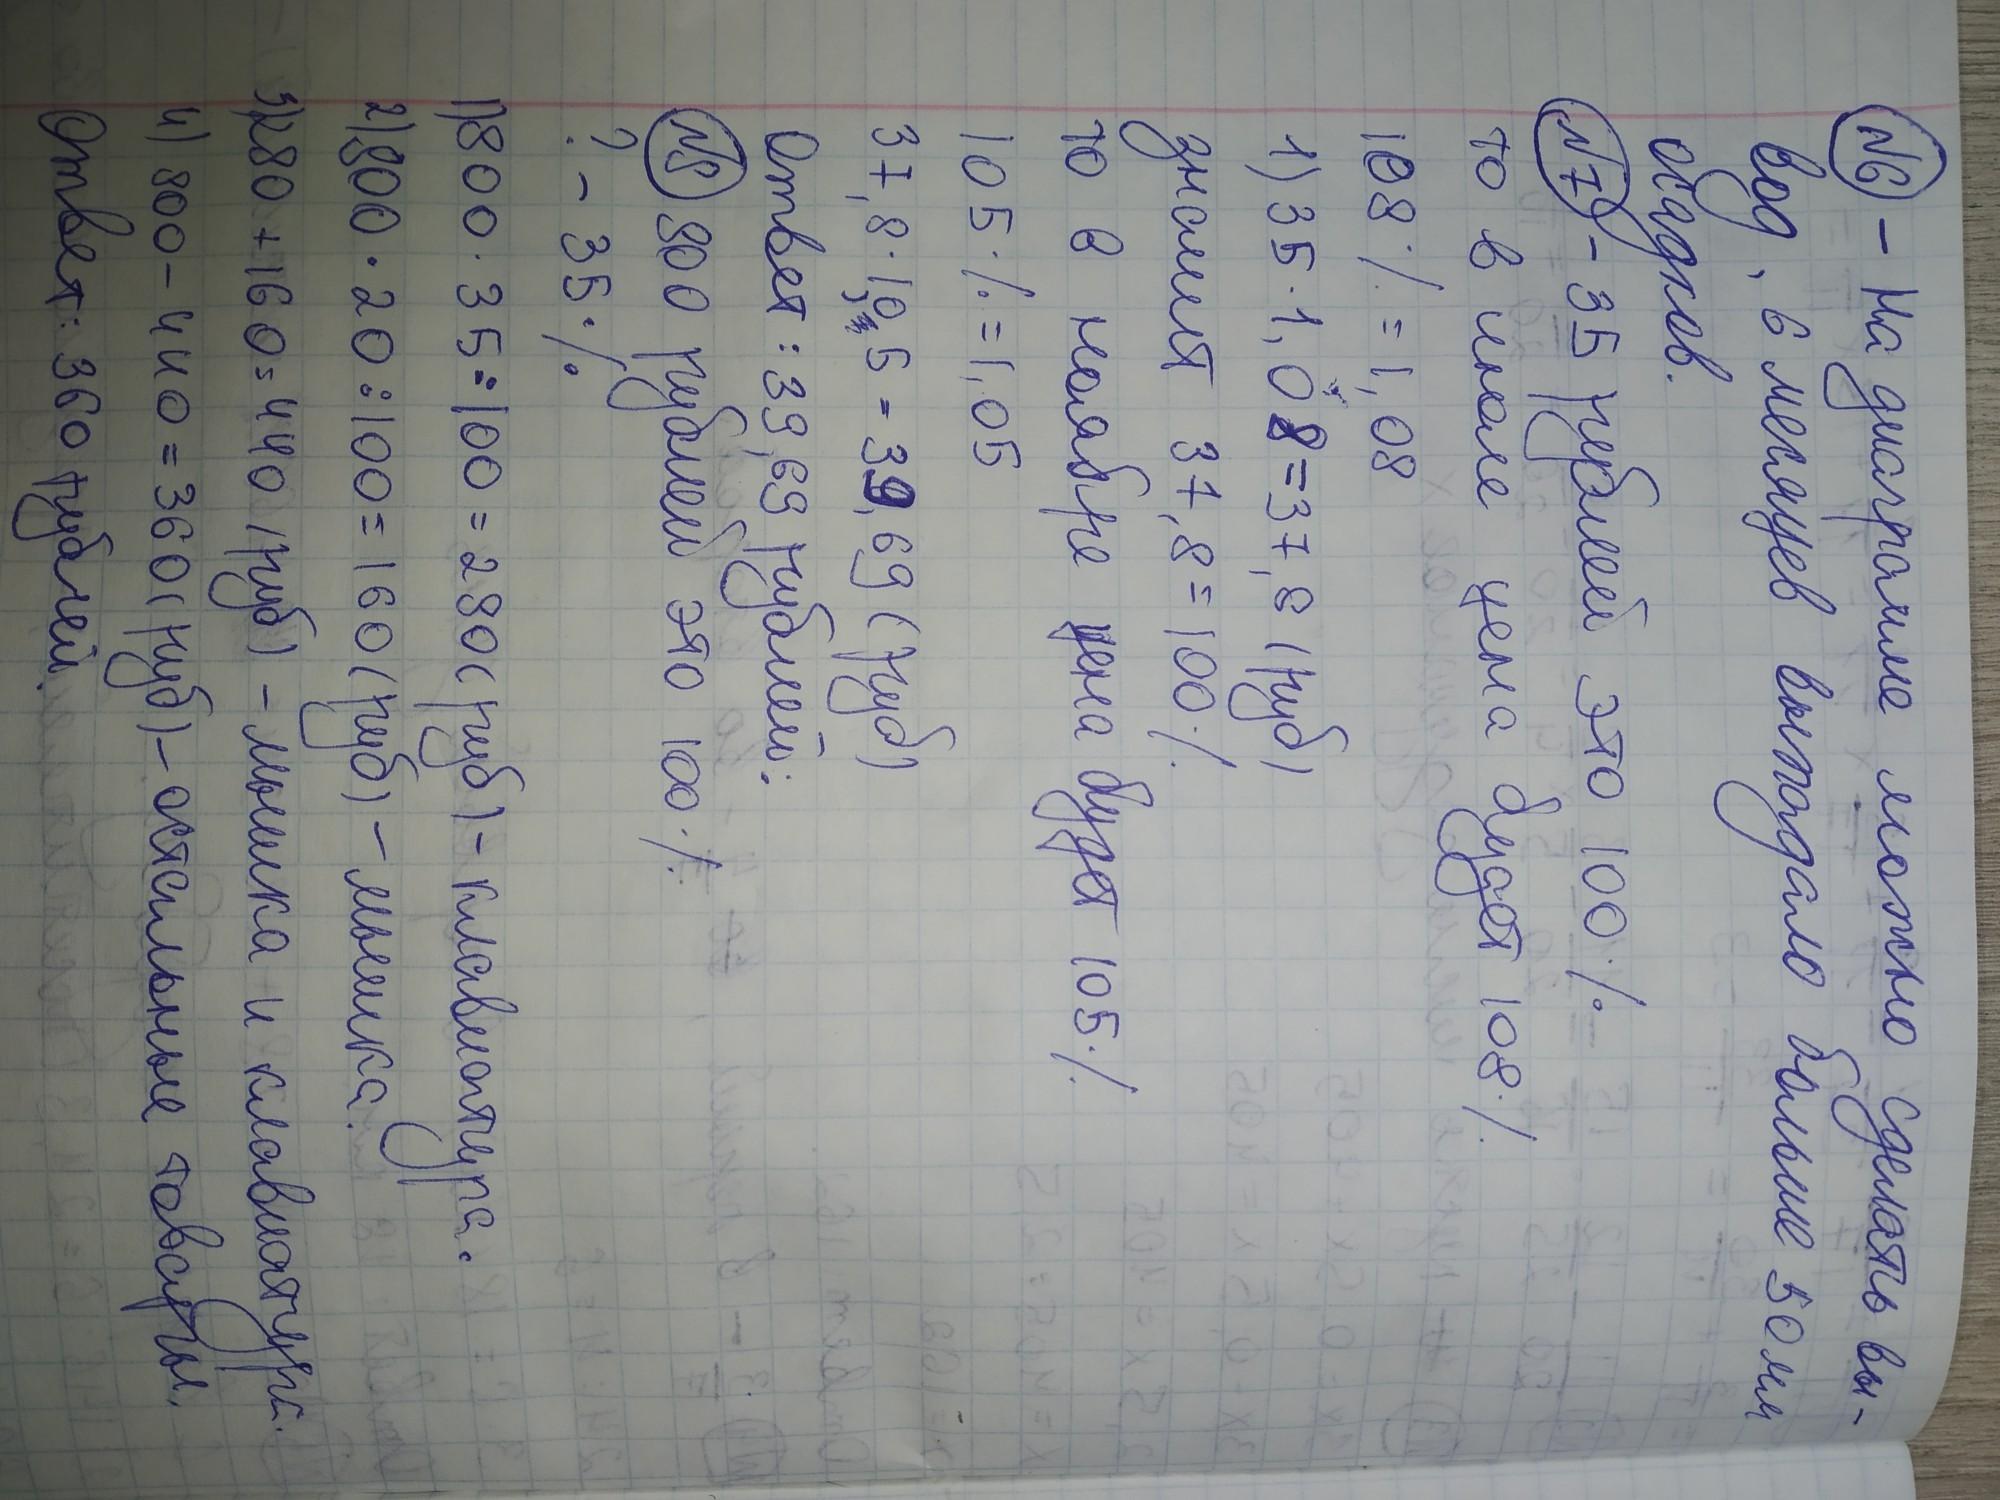 №6 - На диаграмме можно сделать вы-
вод, 6 месяцев выпадало больше 50 мм
осадков.
№7 - 35 рублей это 100%
то в июле цена будет 108%
108% = 1,08
1) 35 · 1,08 = 37,8 (руб)
значит 37,8 = 100%
то в ноябре цена будет 105%
105% = 1,05
37,8 · 1,05 = 39,69 (руб)
Ответ: 39,69 рублей.
№8 800 рублей это 100%
? - 35%
1) 800 · 35 : 100 = 280 (руб) - клавиатура.
2) 800 · 20 : 100 = 160 (руб) - мышка.
3) 280 + 160 = 440 (руб) - мышка и клавиатура.
4) 800 - 440 = 360 (руб) - остальные товары.
Ответ: 360 рублей.